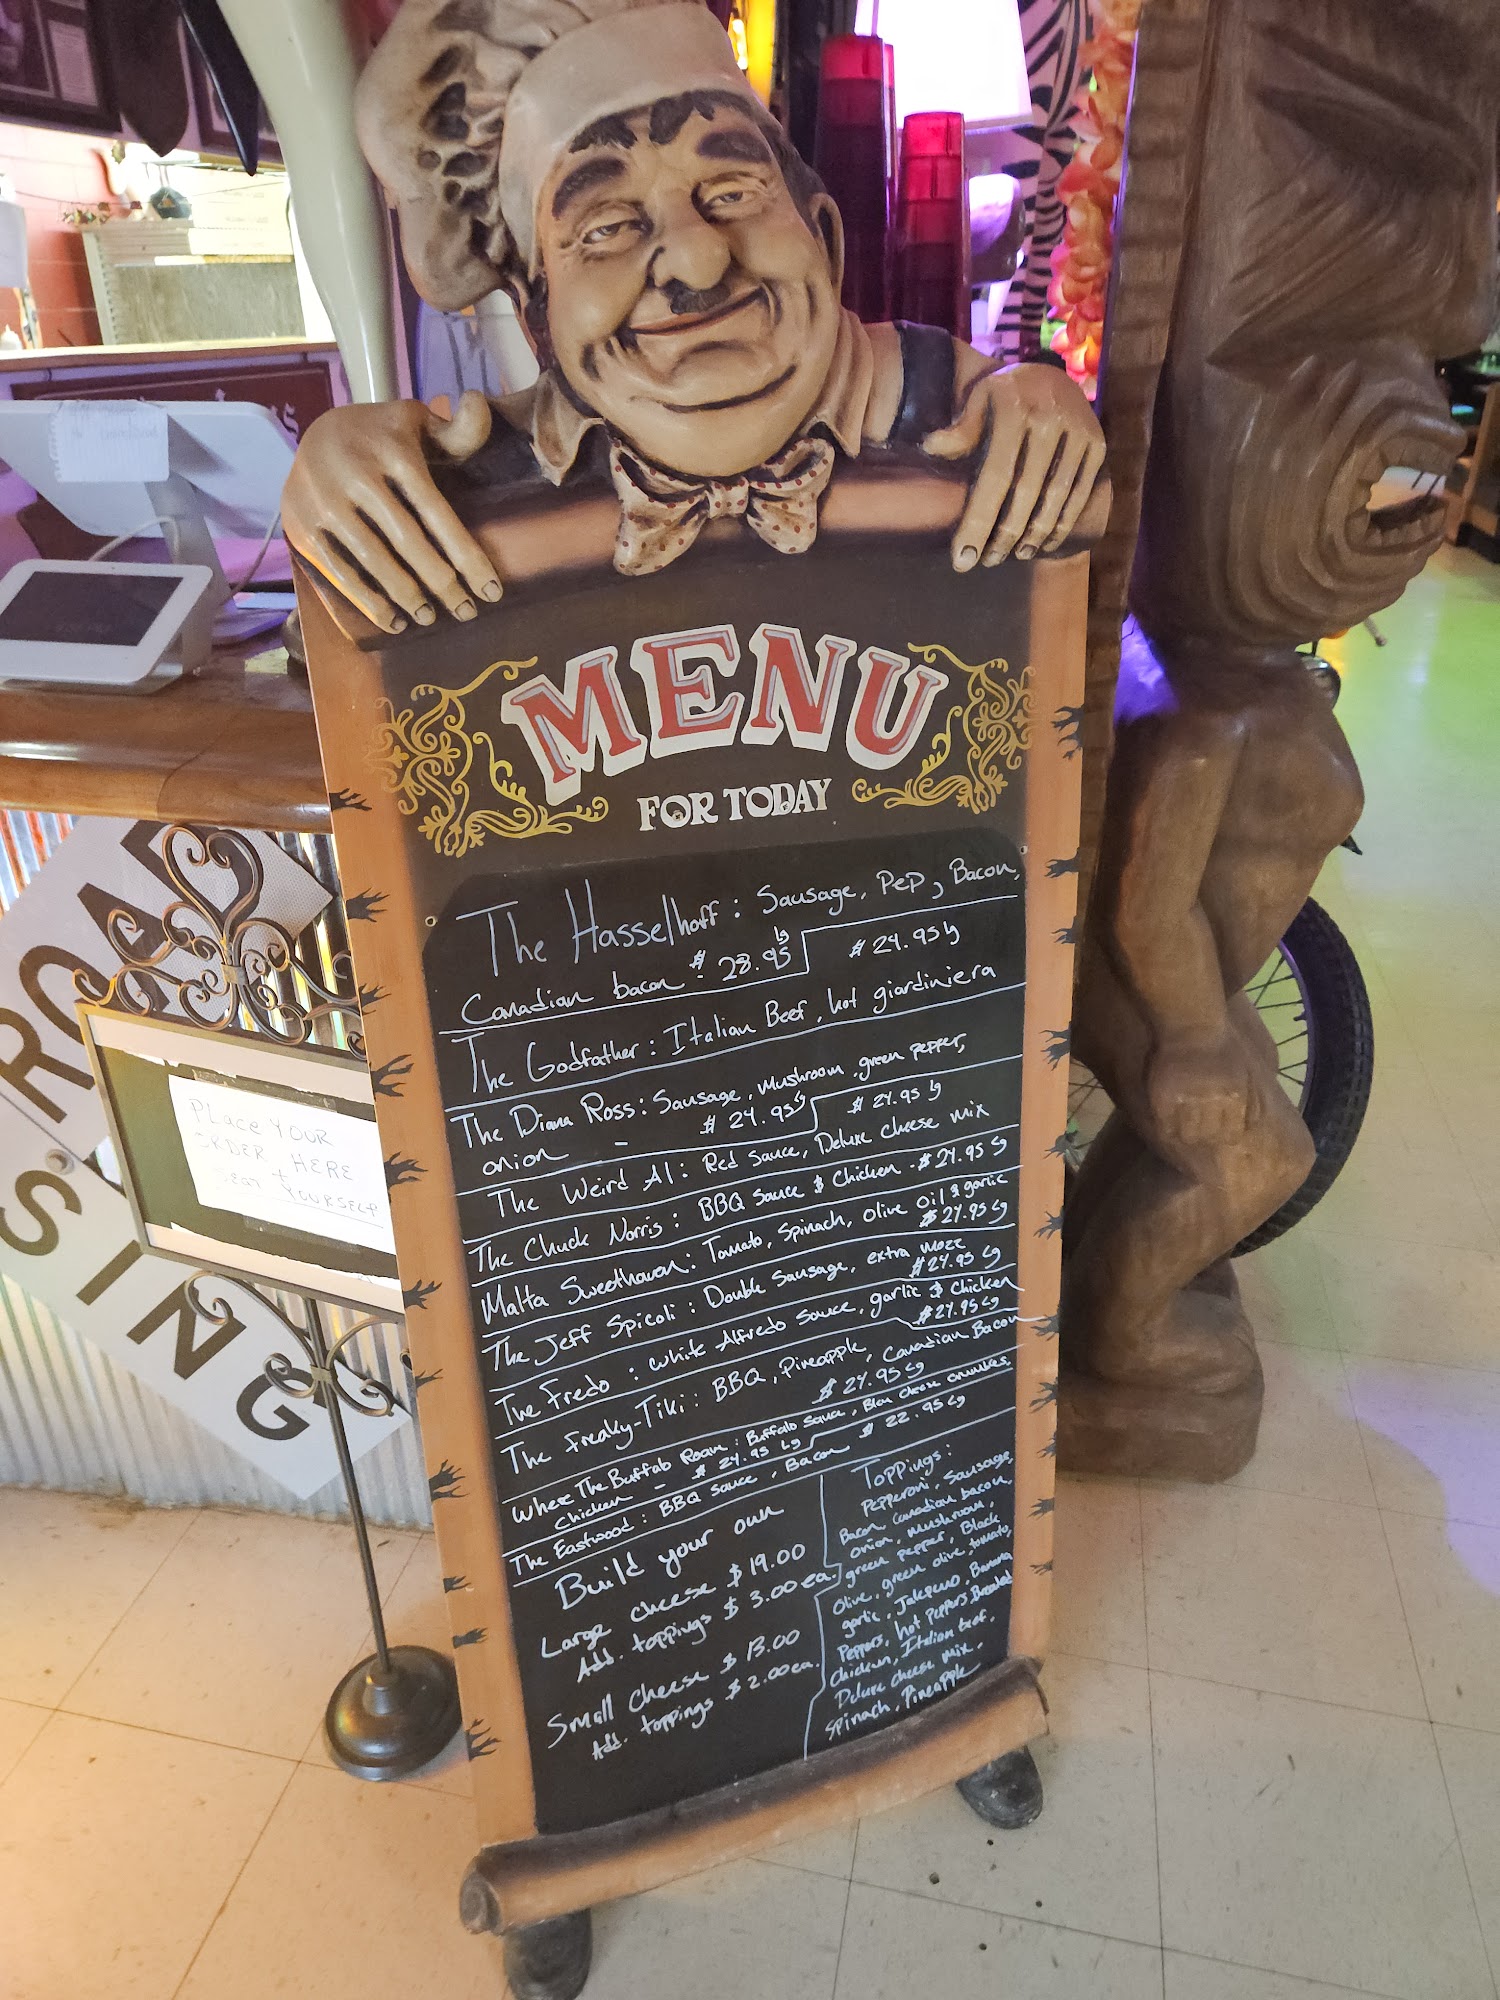 MENU
FOR TODAY
The Hasselhoff : Sausage, Pep, Bacon,
Canadian bacon $ 28.95 lg
$ 24.95 lg
The Godfather : Italian Beef, hot giardiniera
The Diana Ross : Sausage, mushroom, green pepper,
onion - $ 24.95 lg
$ 24.95 lg
The Weird Al : Red Sauce, Deluxe cheese mix
The Chuck Norris : BBQ Sauce & Chicken - $ 24.95 lg
Malta Sweethaven : Tomato, Spinach, olive oil & garlic
$ 24.95 lg
The Jeff Spicoli : Double Sausage, extra mozz
$ 24.95 lg
The Fredo : white Alfredo Sauce, garlic & Chicken
$ 24.95 lg
The Freaky-Tiki : BBQ, Pineapple, Canadian Bacon
$ 24.95 lg
Where The Buffalo Roam : Buffalo Sauce, Bleu cheese crumbles
Chicken - $ 24.95 lg
The Eastwood : BBQ sauce, Bacon $ 22.95 lg
Build your own
Large cheese $ 19.00
Add. toppings $ 3.00 ea.
Small cheese $ 13.00
Add. toppings $ 2.00 ea.
Toppings :
Pepperoni, Sausage,
Bacon, Canadian bacon,
onion, mushroom,
green pepper, Black
olive, green olive, tomato,
garlic, Jalepeno, Banana
Peppers, hot peppers, Breaded
chicken, Italian beef,
Deluxe cheese mix,
Spinach, Pineapple
PLace YOUR
ORDER HERE
SEAT + YOURSELF
ROAD
SING